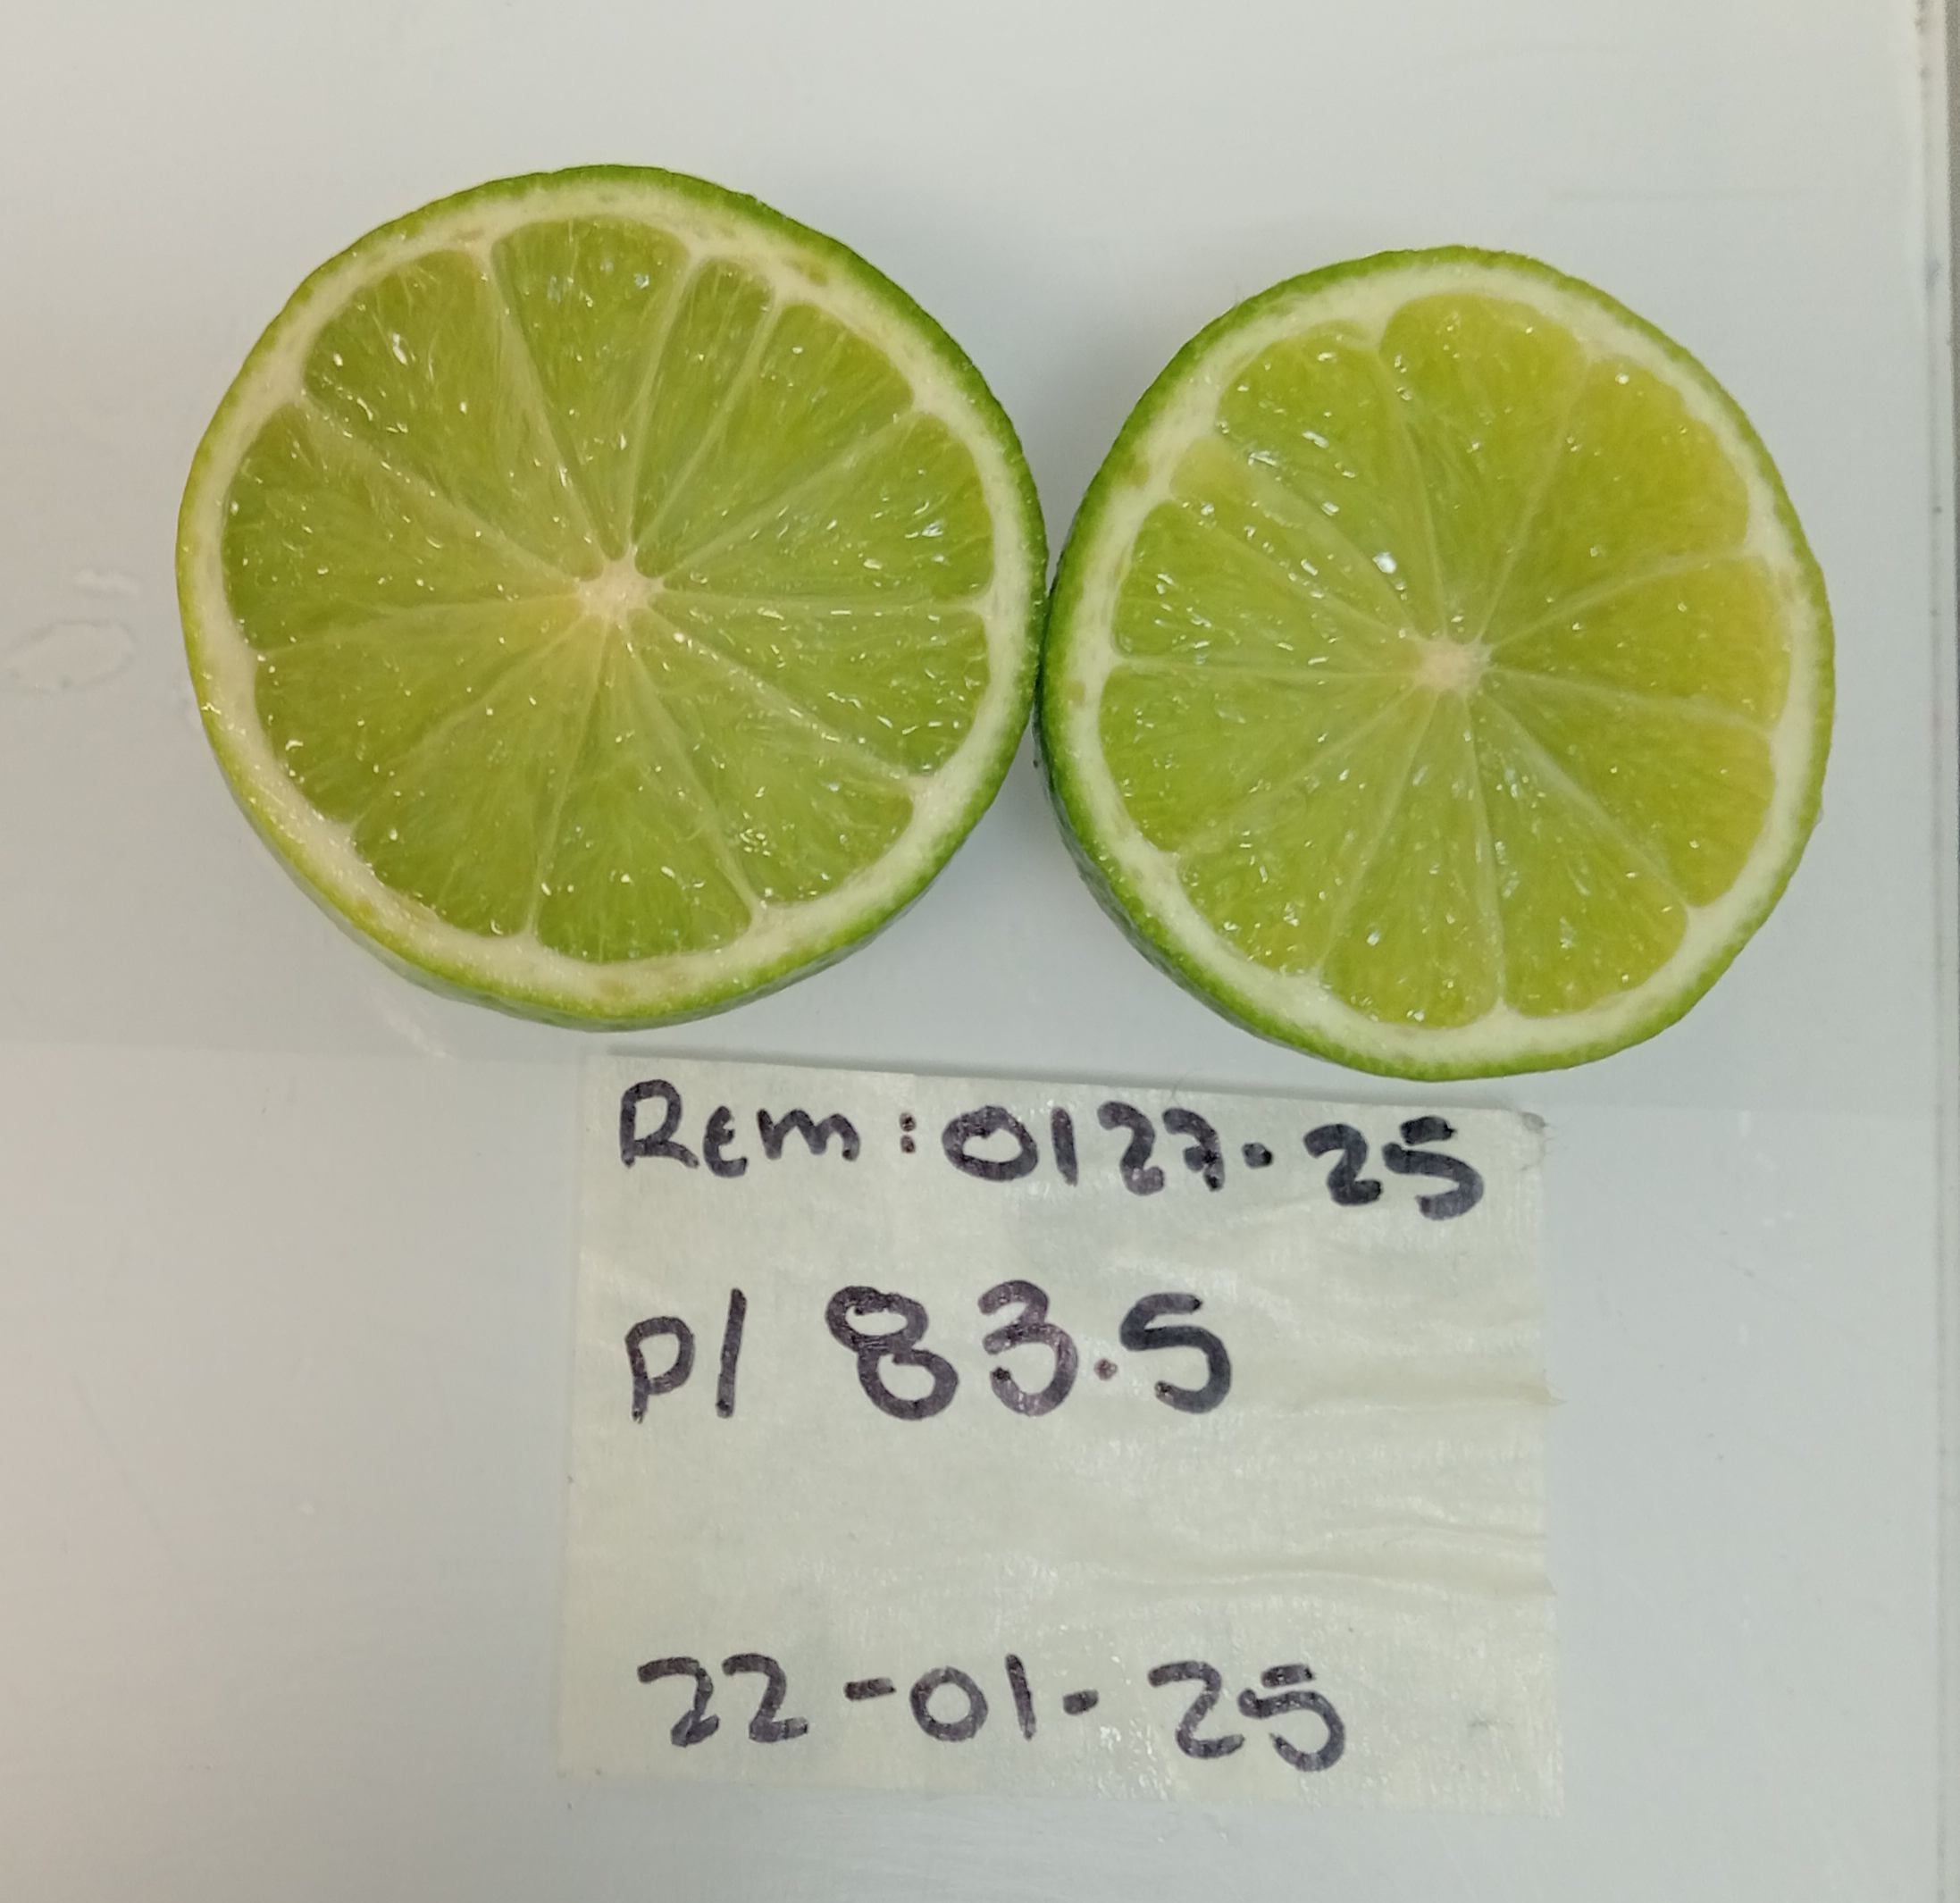 Rem: 0127-25
P/ 83.5
22-01-25